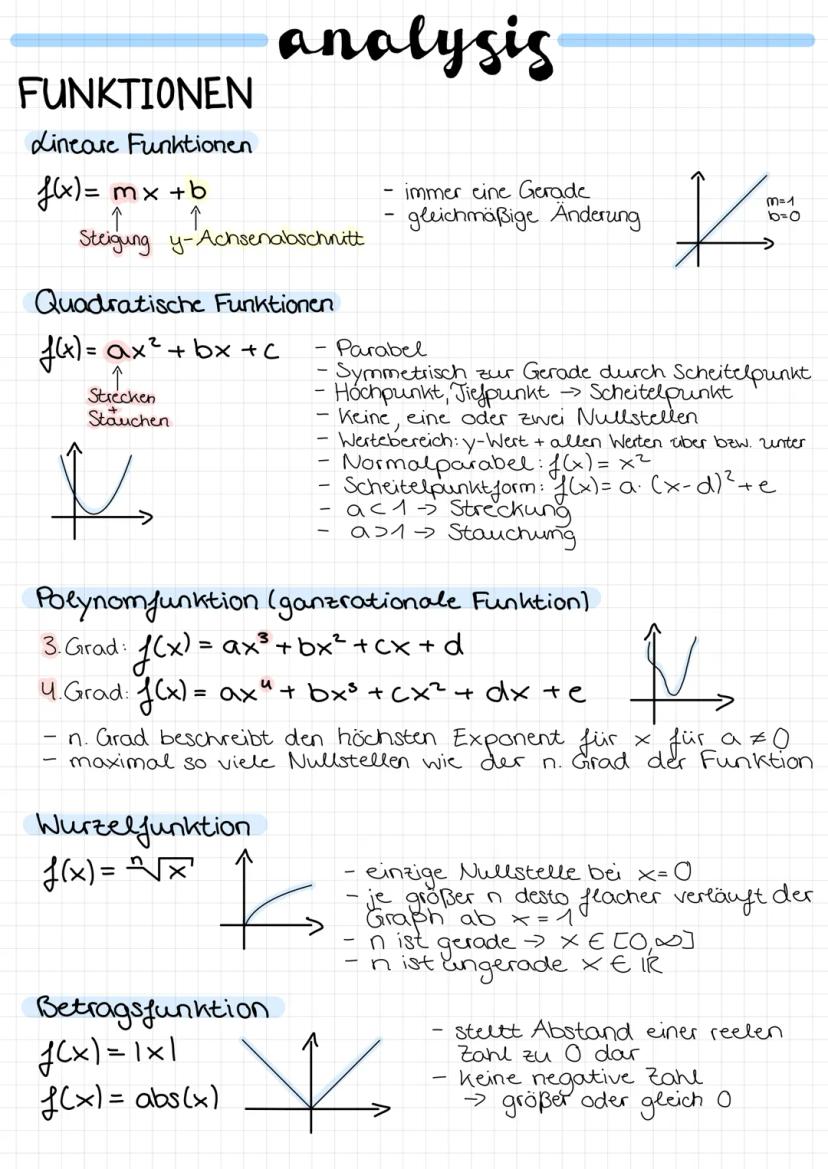 analysis
FUNKTIONEN
Lineare Funktionen
f(x) = mx + b
Steigung y-Achsenabschnitt
- immer eine Gerade
- gleichmäßige Änderung
m=1
b=0
Quadratische Funktionen
f(x) = ax² + bx + c
Strecken
+
Stauchen
- Parabel
- Symmetrisch zur Gerade durch Scheitelpunkt
- Hochpunkt, Tiefpunkt → Scheitelpunkt
- Keine, eine oder zwei Nullstellen
- Wertebereich: y-Wert + allen Werten über bzw. unter
- Normalparabel: f(x) = x²
- Scheitelpunktform: f(x) = a · (x-d)² + e
- a<1 → Streckung
- a>1 → Stauchung
Polynomfunktion (ganzrationale Funktion)
3. Grad: f(x) = ax³ + bx² + cx + d
4. Grad: f(x) = ax⁴ + bx³ + cx² + dx + e
- n. Grad beschreibt den höchsten Exponent für x für a ≠ 0
- maximal so viele Nullstellen wie der n. Grad der Funktion
Wurzelfunktion
f(x) = ⁿ√x
- einzige Nullstelle bei x=0
- je größer n desto flacher verläuft der
Graph ab x = 1
- n ist gerade → x ∈ [0,∞]
- n ist ungerade x ∈ ℝ
Betragsfunktion
f(x) = |x|
f(x) = abs(x)
- stellt Abstand einer reelen
Zahl zu 0 dar
- keine negative Zahl
→ größer oder gleich 0